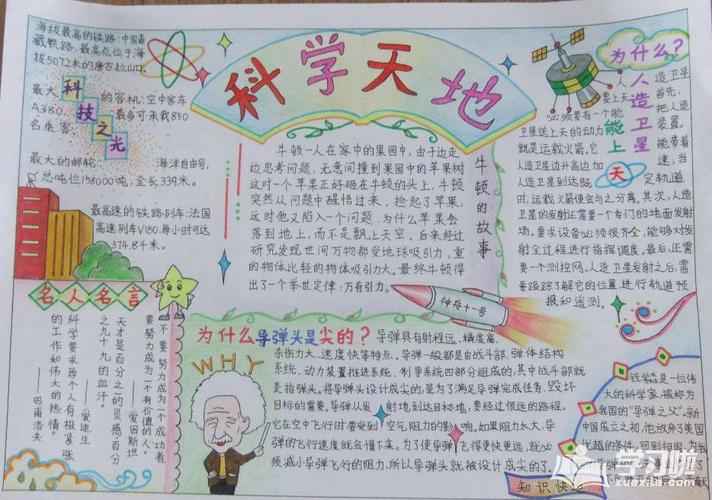 海拔最高的铁路：中国青
藏铁路，最高点位于海
拔5072米的唐古拉山口。
科技之光
最大的客机：空中客车
A380，最多可承载850
名乘客。
最大的邮轮：海洋自由号，
总吨位158000吨，全长339米。
最高速的铁路列车：法国
高速列车V150，每小时可达
574.8千米。
科学天地
牛顿的故事
牛顿一人在家中的果园中，由于边走
边思考问题，无意间撞到果园中的苹果树
这时一个苹果正好砸在牛顿的头上，牛顿
突然从问题中醒悟过来，捡起了苹果，
这时他又陷入一个问题，为什么苹果会
落到地上，而不是飘上天空，后来经过
研究发现世间万物都受地球吸引力，重
的物体比轻的物体吸引力大。最终牛顿得
出了一个举世定律：万有引力。
为什么？
人造卫星
能上天
人造卫星
要上天，首先，
必须要有一个能把人造
卫星送上天的动力装置，
就是运载火箭，它能带着
人造卫星边升高边加速，当
人造卫星到达预定轨道
时，运载火箭便会与之分离。其次，人造
卫星的发射还需要一个专门的地面发射
场，要求设备出特很齐全，能够对发
射全过程进行指挥调度。最后，还需
要一个测控网，人造卫星发射之后，需
要跟踪了解它的位置进行轨道预
报和监测。
神舟十一号
名人名言
不要努力成为一个成功者
要努力成为一个有价值的人。
——爱因斯坦
天才是百分之一的灵感，百分
之九十九的血汗。
——爱迪生
科学要求每个人有极紧张
的工作和伟大的热情。
——巴甫洛夫
为什么导弹头是尖的？
WHY
导弹具有射程远、精度高、
杀伤力大、速度快等特点，导弹一般都是由战斗部、弹体结构
系统、动力装置推进系统、制导系统四部分组成的，其中战斗部就
是指弹头。将导弹头设计成尖的，是为了满足导弹完成任务、毁坏
目标的需要。导弹从发射地，到达目标地，要经过很远的路程。
它在空中飞行时需受到空气阻力的影响，如果阻力太大，导
弹的飞行速度就会慢下来，为了使导弹飞得更快更远，就必
须减小导弹飞行的阻力，所以导弹头就被设计成尖的了。
钱学森是一位伟
大的科学家，被称为
我国的“导弹之父”，新
中国成立之初，他放弃了美国
优越的条件，回到祖国，为
献
知识快
学习啦
xuexila.com